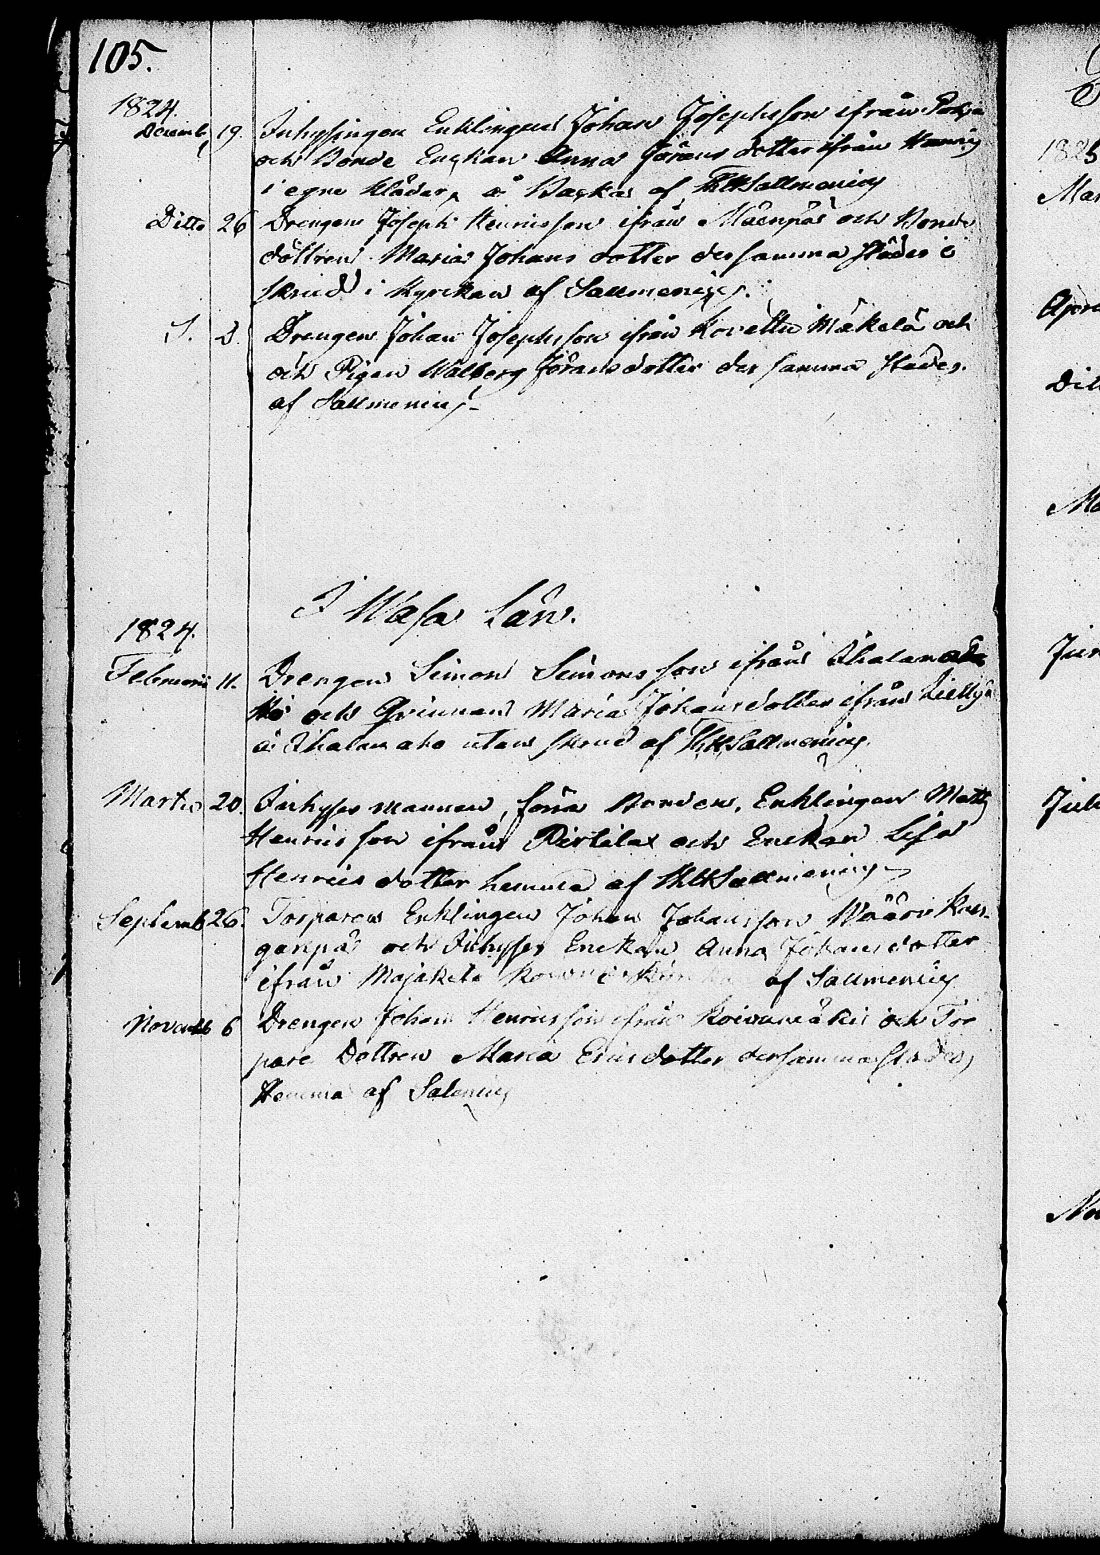 105.
1824.
Decemb, 19. Inhysingen Enklingen Johan Josephsson ifrån
och Bonde Enckan Anna Görans dotter ifrån
i egne kläder, å Backas af Sallmenius
Ditto 26 Drengen Joseph Henricsson ifrån Mäenpää och Bonde
dottren Maria Johans dotter der samma städes i
skrud i Kyrckan af Sallmenius.
S. D. Drengen Johan Josephsson ifrån Kovettu Mäkelä och
och Pigan Walborg Jörans dotter der samma stades.
af Sallmenius
I Wasa Län.
1824.
Februarii 11. Drengen Simon Simonsson ifrån
och Qvinnan Maria Johans dotter ifrån
å Ahalanaho utan skrud af Sallmenius
Martii 20. Inhysses mannen, förra Bonden, Enklingen Matts
Henricsson ifrån och Enckan Lisa
Henrics dotter hemma af Sallmenius
Septemb 26. Torparen Enklingen Johan Johansson
och Inhysses Enckan Anna Johans dotter
ifrån Majakeld af Sallmenius
Novemb 6 Drengen Johan Henricsson ifrån Koivumäki och Tor
pare Dottren Maria Erics dotter dersamma stades,
Hemma af Salenius
1825
Mar
Apri
Ditt
Ma
Jun
Juli
Nov